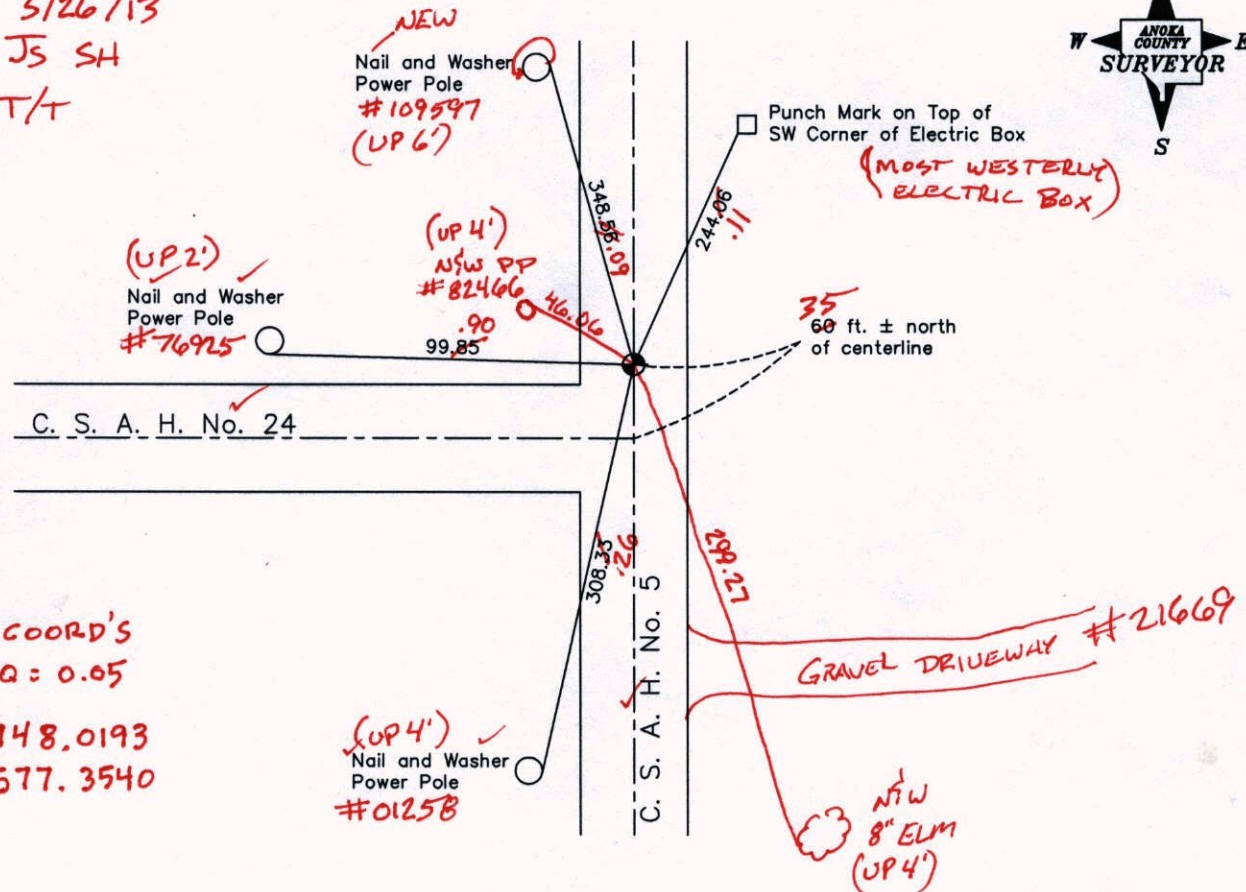 5/26/13
JS SH
T/T
NEW
Nail and Washer
Power Pole
#109597
(UP 6')
W
ANOKA
COUNTY
SURVEYOR
E
S
Punch Mark on Top of
SW Corner of Electric Box
(MOST WESTERLY
ELECTRIC BOX)
348.58
.09
244.06
.11
(UP 4')
N/W PP
#82466
46.06
(UP 2')
Nail and Washer
Power Pole
#76925
.90
99.85
35
60 ft. ± north
of centerline
C. S. A. H. No. 24
308.33
.26
299.27
C. S. A. H. No. 5
GRAVEL DRIVEWAY #21669
COORD'S
Q = 0.05
148.0193
577.3540
(UP 4')
Nail and Washer
Power Pole
#01258
N/W
8" ELM
(UP 4')